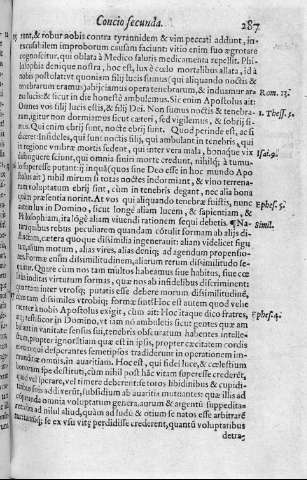 Concio secunda. 287
runt, & robur nobis contra tyrannidem & vim peccati addunt, in-
excusabilem improborum causam faciunt: vitio enim suo ægrotare
cognoscitur, qui oblata à Medico salutis medicamenta repellit. Phi-
losophia denique nostra, hoc est, lux è cœlo mortalibus allata, id à
nobis postulat: vt quoniam filij lucis sumus (qui aliquando noctis &
tenebrarum eramus) abijciamus opera tenebrarum, & induamur ar- Rom. 13.
ma lucis: & sicut in die honestè ambulemus. Sic enim Apostolus ait:
Omnes vos filij lucis estis, & filij Dei. Non sumus noctis & tenebra- 1. Thess. 5.
rum, igitur non dormiamus sicut cæteri, sed vigilemus, & sobrij si-
mus. Qui enim ebrij sunt, nocte ebrij sunt. Quod perinde est, ac si
diceret: infideles, qui sunt noctis filij, qui ambulant in tenebris, qui
in regione vmbræ mortis sedent, qui inter vera mala, bonaque vix Isai. 9.
distinguere sciunt, qui omnia finiri morte credunt, nihilq; à tumu-
lo superesse putant: ij inquā (quos sine Deo esse in hoc mundo Apo
stolus ait) nihil mirum si totas noctes indormiant, & viuo terrena-
rum voluptatum ebrij sint, cùm in tenebris degant, nec alia bona
quàm præsentia norint. At vos qui aliquando tenebræ fuistis, nunc Ephes. 5.
autem lux in Domino, sicut longe aliam lucem, & sapientiam, &
Philosophiam, ita lōgè aliam viuendi rationem sequi debetis. ¶Na- Simil.
turæ quibus rebus peculiarem quandam cōtulit formam ab alijs di-
stinctam, cætera quoque dissimilia ingenerauit: aliam videlicet figu
ram, alium motum, alias vires, alias deniq; ad agendum propensio-
nes. Formæ enim dissimilitudinem, aliarum rerum dissimilitudo se-
quitur. Quare cùm nos tam multos habeamus siue habitus, siue cœ
lestium virtutum formas, quæ nos ab infidelibus discriminent:
quantam inter vtrosq; putatis esse debere morum dissimilitudinē,
cùm tam dissimiles vtrobiq; formæ sint? Hoc est autem quod vehe
menter à nobis Apostolus exigit, cùm ait: Hoc itaque dico fratres, Ephes. 4.
& testificor in Domino, vt iam nō ambuletis sicut gentes quæ am
bulant in vanitate sensus sui, tenebris obscuratum habentes intelle-
ctum, propter ignorātiam quæ est in ipsis, propter cæcitatem cordis
eorum: qui desperantes semetipsos tradiderunt in operationem im-
munditiæ omnis, in auaritiam. Hoc est, qui fidei luce, & cælestium
bonorum spe destituti, cùm nihil post hāc vitam superesse crederēt,
quod vel sperare, vel timere deberent: se totos libidinibus & cupidi-
tatibus addixerūt, subsidium ab auaritia mutuantes: quæ illis ad
explenda omnia voluptatum genera, aurum & argentū suppedita-
ret. Ita ad nihil aliud, quàm ad ludū & otium se natos esse arbitrarē
mutuantū, se ex vsu vitę perdidisse crederent, quantū voluptatibus
detra-